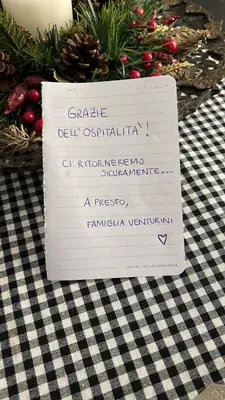 GRAZIE
DELL'OSPITALITÀ!
CI RITORNEREMO
SICURAMENTE...
A PRESTO,
FAMIGLIA VENTURINI